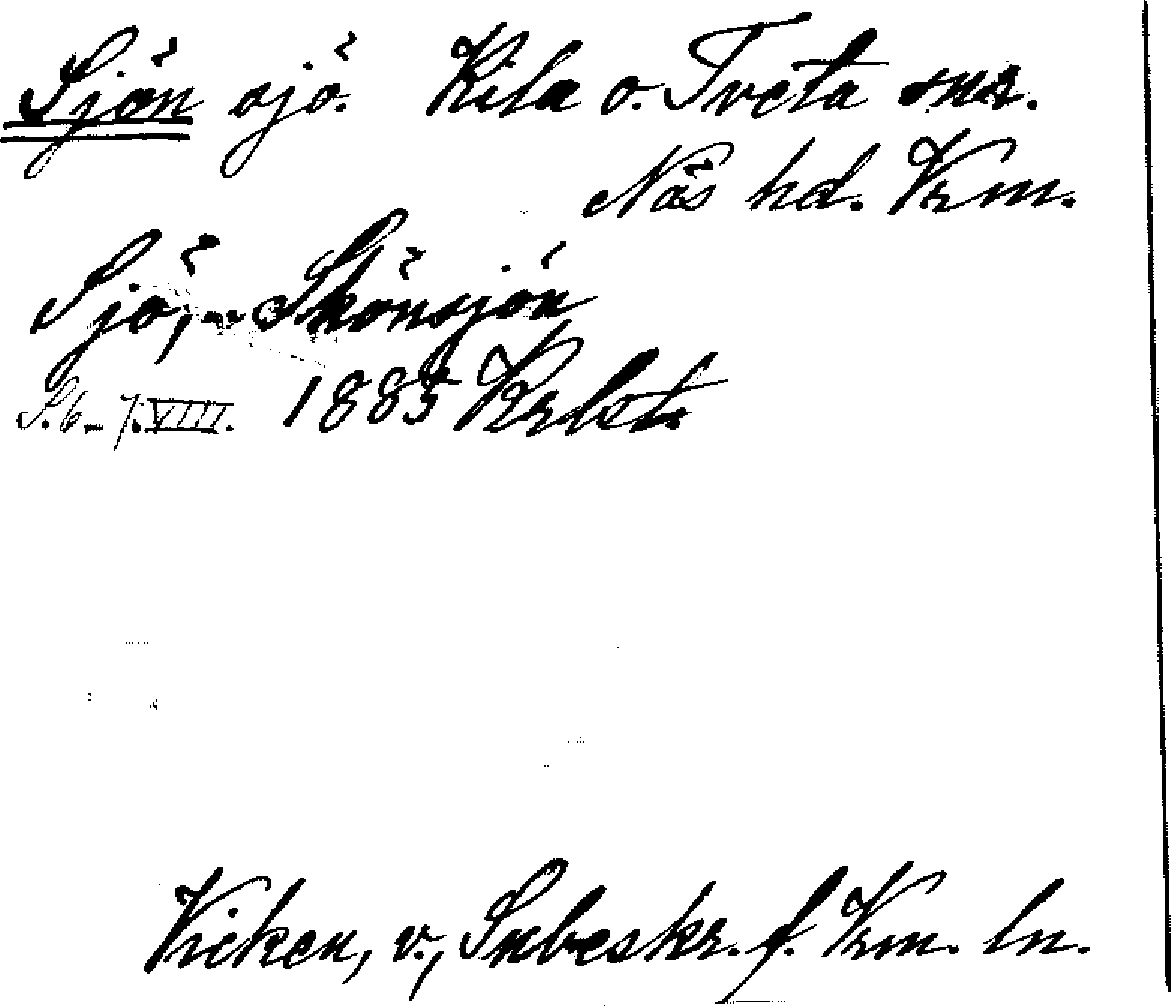 Sjön sjö. Kila o. Tveta snr.
Näs hd. Vrm.
Sjö,- Skönsjön
S. 6-7. VIII. 1883 Krlst.
Vieken, v., Snbeskr. f. Vrm. ln.